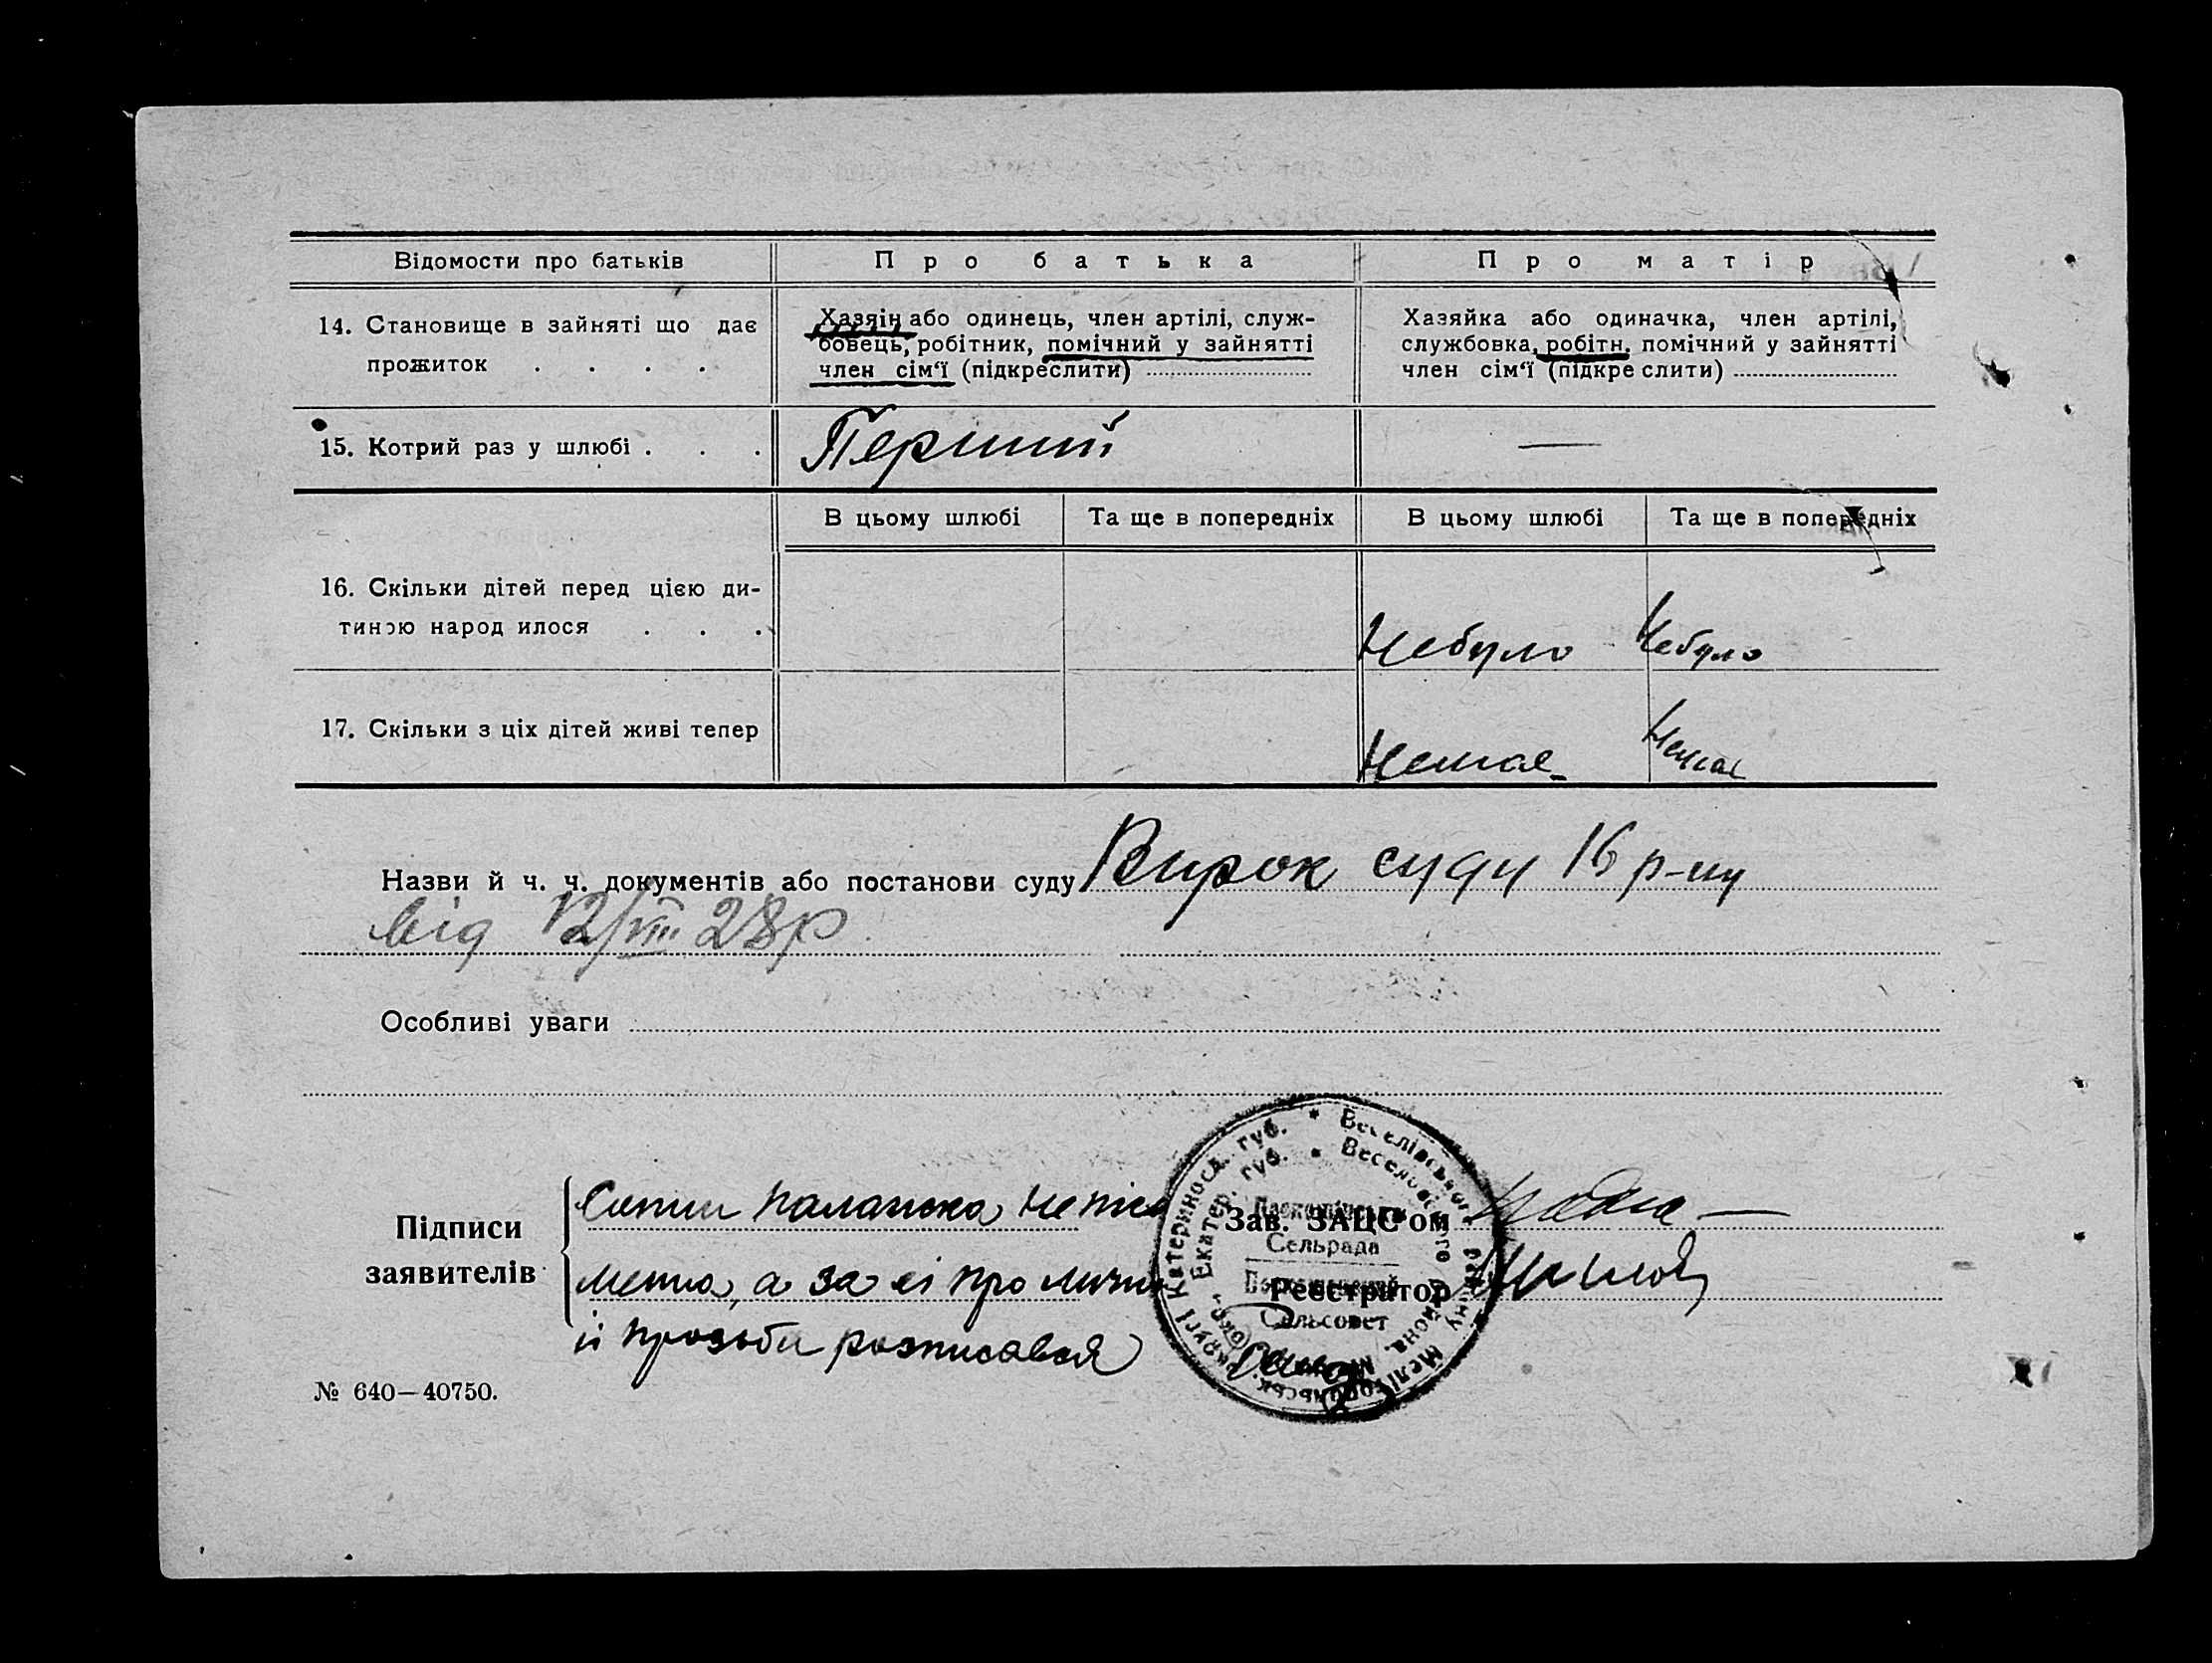 Відомости про батьків
Про батька
Про матір
14. Становище в зайняті що дає
прожиток . . . .
Хазяїн або одинець, член артілі, служ-
бовець, робітник, помічний у зайнятті
член сім‘ї (підкреслити)
Хазяйка або одиначка, член артілі,
службовка, робітн. помічний у зайнятті
член сім‘ї (підкре слити)
15. Котрий раз у шлюбі . . .
Перший
—
В цьому шлюбі
Та ще в попередніх
В цьому шлюбі
Та ще в попередніх
16. Скільки дітей перед цією ди-
тиною народ илося . . .
Небуло
Небуло
17. Скільки з ціх дітей живі тепер
Немає
Немає
Назви й ч. ч. документів або постанови суду Вирок суду 16 р-ну
від 12/VIII 28р.
Особливі уваги
Підписи
заявителів
Палажка не
а за еі про
й прозьби розписався
Зав. ЗАЦС‘ом
Реєстратор
Катериносл. губ. * Веселівського району Мелітопольськ. округі
Екатер. губ. * Веселовского района, окр.
Сельрада
Сельсовет
№ 640—40750.